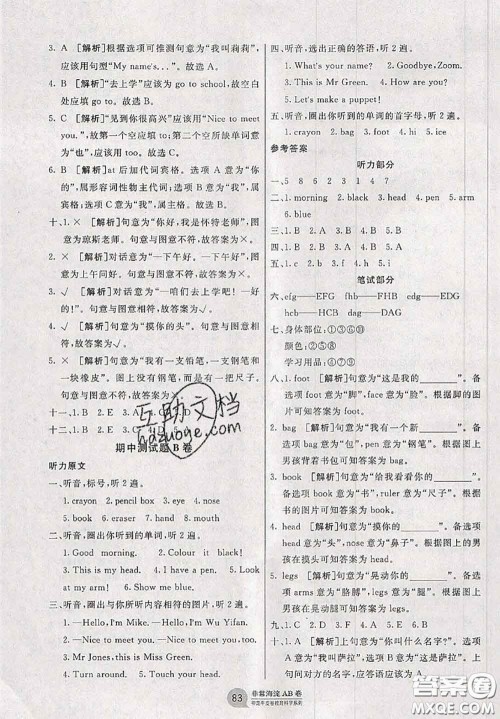 3. A [解析]根据选项可推测句意为“我叫莉莉”，
应该用句型“My name is...”或者“I'm...”来
表达。故选 A。
4. B [解析]“去上学”应该为 go to school，故空白
处应填 go to。故选 B。
5. C [解析]“见到你很高兴”应该为“Nice to meet
you.”，故第一个空应填 to；第二个空所缺单词意
为“也”，应该用 too。故选 C。
6. B [解析]at 后加代词宾格。选项 A 意为“他
的”，属形容词性物主代词；选项 B 意为“我”，属
宾格。选项 C 意为“我”，属主格。故选 B。
十、1. × [解析]句意为“你好，我是怀特老师”，图
意为琼斯老师。句意与图意不符，故答案为×。
2. × [解析]句意为“—下午好。—下午好。”，
图意为上午问好。句意与图意不符，故答案为×。
3. √ [解析]句意为“—咱们去上学吧！—好
的！”句意与图意相符，故答案为√。
4. √ [解析]句意为“摸你的头”。句意与图意相
符，故答案为√。
5. × [解析]句意为“我有一支铅笔，一支钢笔和
一块橡皮”。图上没有钢笔，而是有一把尺子。
句意与图意不符，故答案为×。
十一、1. B 2. E 3. A
十二、1. C 2. 3. 4. D 5.
期中测试题 B 卷
听力原文
一、听音，标号，听 2 遍。
1. crayon 2. pencil box 3. eye
4. ear 5. mouth 6. nose
7. arm 8. hand
二、听音，圈出你所听到的单词，听 2 遍。
1. Good morning. 2. Colour it black!
3. This is my head. 4. I have a pen.
5. Wave your arm. 6. Show me blue.
三、听音，圈出与你所听内容相符的图片，听 2 遍。
1. —Hello, I'm Mike. —Hello, I'm Wu Yifan.
2. —Nice to meet you. —Nice to meet you, too.
3. Mr Jones, this is Miss Green.
4. Touch your head.
5. —How are you? —I'm fine, thank you.
四、听音，选出正确的答语，听 2 遍。
1. What's your name? 2. Goodbye, Zoom.
3. This is Mr Green. 4. How are you?
5. Let's make a puppet!
五、听音，圈出你听到的单词的首字母，听 2 遍。
1. crayon 2. bag 3. foot 4. head 5. ice
参考答案
听力部分
一、5 8 6 2 3 1 4 7
二、1. morning 2. black 3. head 4. pen 5. arm
6. blue
三、1. A 2. B 3. A 4. B 5. B
四、1. A 2. B 3. B 4. A 5. A
五、1. c 2. b 3. f 4. h 5. i
笔试部分
六、efg—EFG fhb—FHB edf—EDF
hcb—HCB dag—DAG
七、身体部位：①③⑥⑩
颜色：
学习用品：
八、1. foot [解析]句意为“这是我的______”。备
选项 face 意为“脸”，foot 意为“脚”。根据图片可
知答案为 foot。
2. bag [解析]句意为“我有一个新______”。备
选项 bag 意为“包”，pen 意为“钢笔”。根据图上
男孩背着书包可知答案为 bag。
3. book [解析]句意为“给我看看你的______”。
备选项 book 意为“书”，ruler 意为“尺子”。根据
图上男孩手中拿着书可知答案为 book。
4. head [解析]句意为“摸你的______”。备选
项 head 意为“头”，nose 意为“鼻子”。根据图上
男孩摸头可知答案为 head。
5. legs [解析]句意为“晃动你的______”。备选
项 arms 意为“胳膊”，legs 意为“腿”。根据图上
男孩晃动腿可知答案为 legs。
九、1. C 2. A 3. E 4. D 5. B
十、1. A [解析]句意为“—你叫什么名字？—
83
非常海淀 AB 卷
互助文档
hazuoye.com